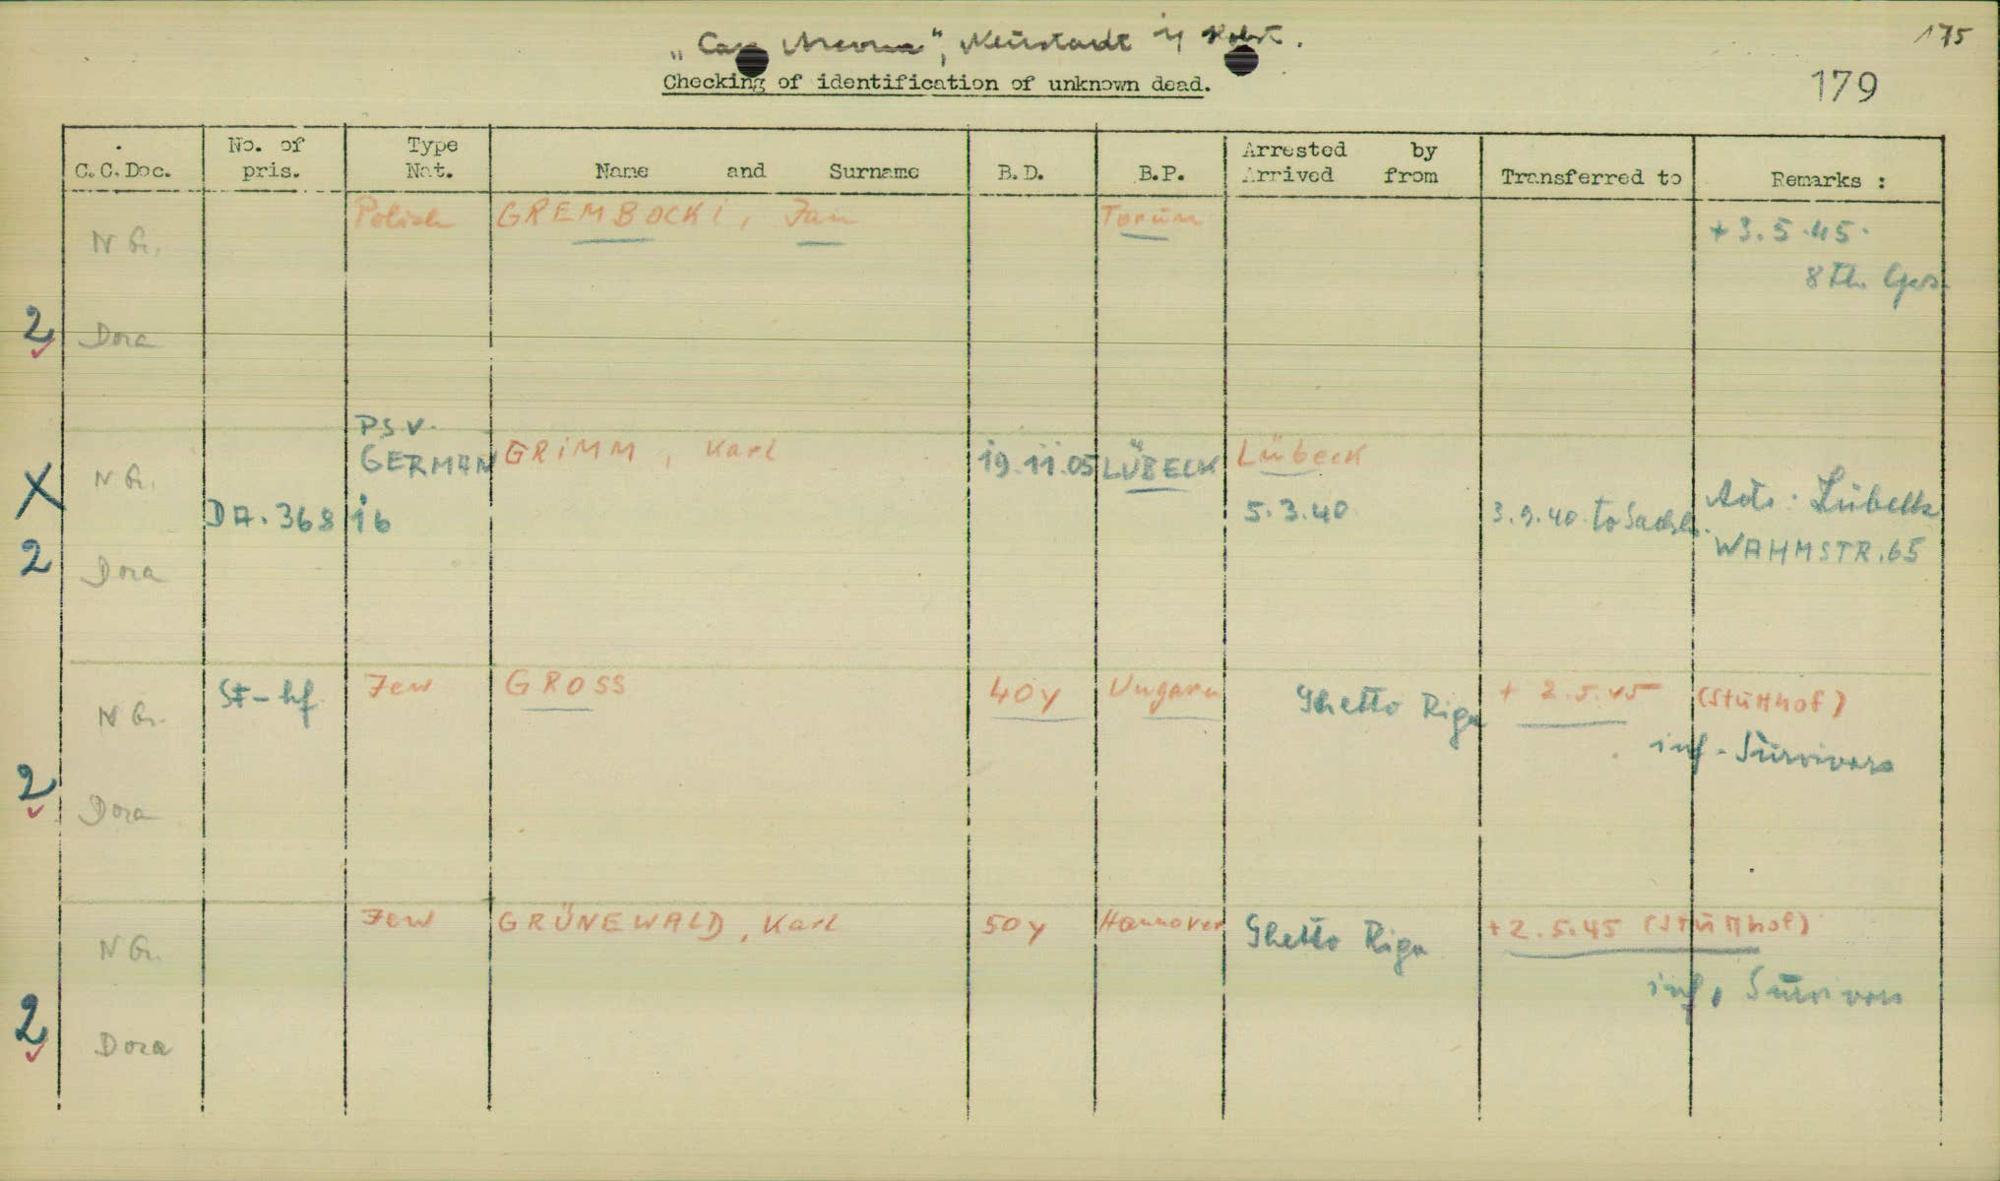 „Cap Arcona", Neustadt i/ Holst.
175
Checking of identification of unknown dead.
179
C.C.Doc. No. of pris. Type Nat. Name and Surname B.D. B.P. Arrested by Arrived from Transferred to Remarks :
Polish GREMBOCKI, Jan Torun + 3.5.45.
N G.
8 Th. Ges.
2 Dora
PSV.
GERMAN GRIMM, Karl 19.11.05 LÜBECK Lübeck
X N G.
DA.368 ib 5.3.40 3.9.40 to Sachsh. Adr: Lübeck
WAHMSTR.65
2 Dora
St-hf Jew GROSS 40y Ungarn Ghetto Riga + 2.5.45 (Stutthof)
N G.
inf. Survivors
2 Dora
Jew GRÜNEWALD, Karl 50y Hannover Ghetto Riga +2.5.45 (Stutthof)
N G.
inf. Survivors
2 Dora